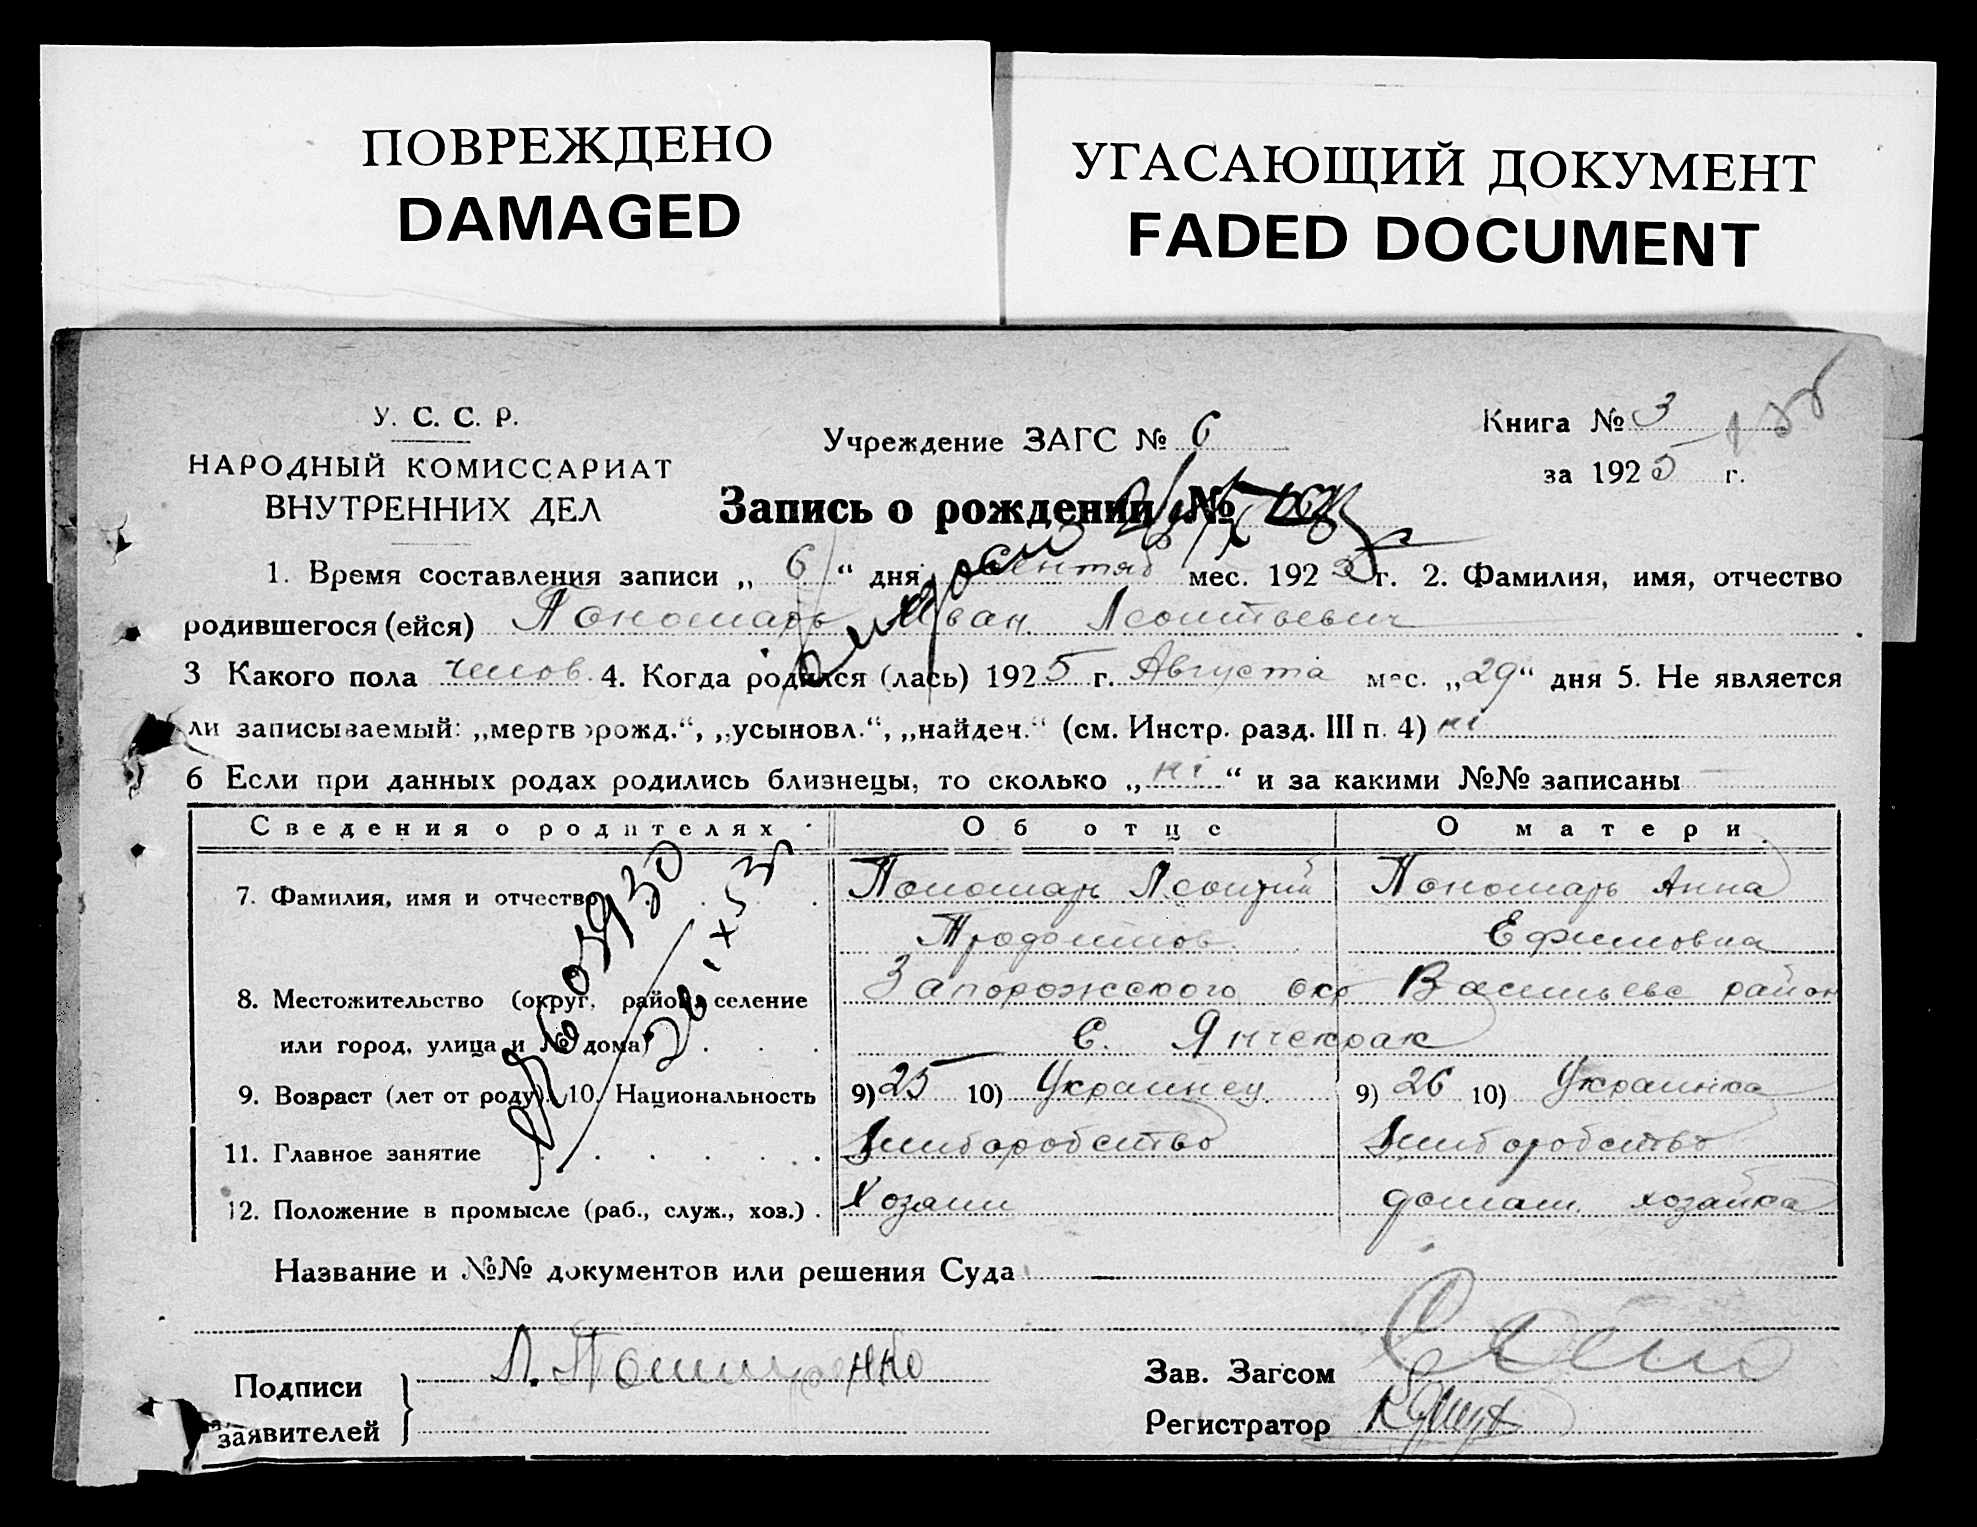 ПОВРЕЖДЕНО
DAMAGED
УГАСАЮЩИЙ ДОКУМЕНТ
FADED DOCUMENT
У. С. С. Р.
НАРОДНЫЙ КОМИССАРИАТ
ВНУТРЕННИХ ДЕЛ
Учреждение ЗАГС № 6
Книга № 3
за 1925 г.
Запись о рождении №
1. Время составления записи „ 6 “ дня мес. 192 г. 2. Фамилия, имя, отчество
родившегося (ейся) Пономарь Иван Леонтьевич
3 Какого пола челов. 4. Когда родился (лась) 1925 г. Августа мес. „29“ дня 5. Не является
ли записываемый: „мертворожд.“, „усыновл.“, „найден.“ (см. Инстр. разд. III п. 4) ні
6 Если при данных родах родились близнецы, то сколько „ ні “ и за какими №№ записаны
Сведения о родителях Об отце О матери
7. Фамилия, имя и отчество Пономарь Леонтий Пономарь Анна
Ефимовна
8. Местожительство (округ, район, селение Запорожского окр Васильевс район
или город, улица и № дома) с. Янчекрак
9. Возраст (лет от роду). 10. Национальность 9) 25 10) Украинец 9) 26 10) Украинка
11. Главное занятие
12. Положение в промысле (раб., служ., хоз.) . Хозяин домаш. хозайка
Название и №№ документов или решения Суда
Подписи
заявителей
Л.
Зав. Загсом
Регистратор